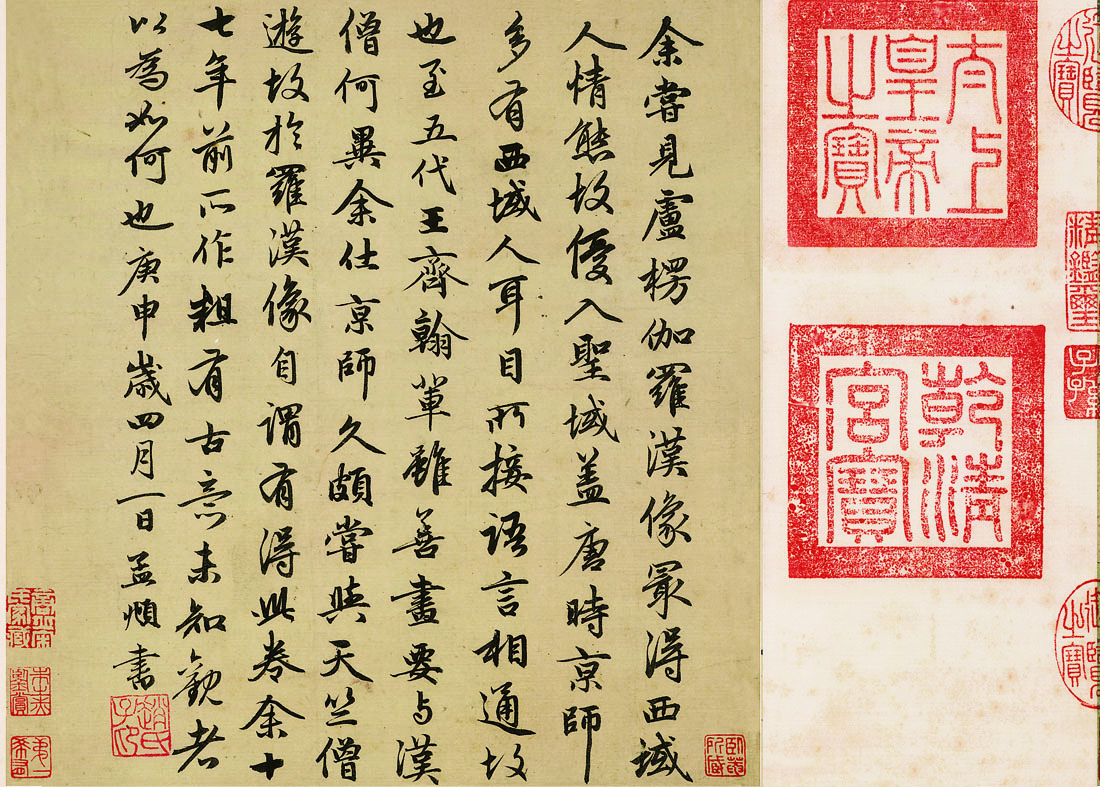 太上皇帝之寶
乾清宮寶
精鑑璽
余嘗見盧楞伽羅漢像冣得西域
人情態故優入聖域蓋唐時京師
多有西域人耳目所接語言相通故
也至五代王齊翰輩雖善畫要与漢
僧何異余仕京師久頗嘗與天竺僧
遊故於羅漢像自謂有得此卷余十
七年前所作粗有古意未知觀者
以為如何也庚申歲四月一日孟頫書
趙氏子昂
臥葊所藏